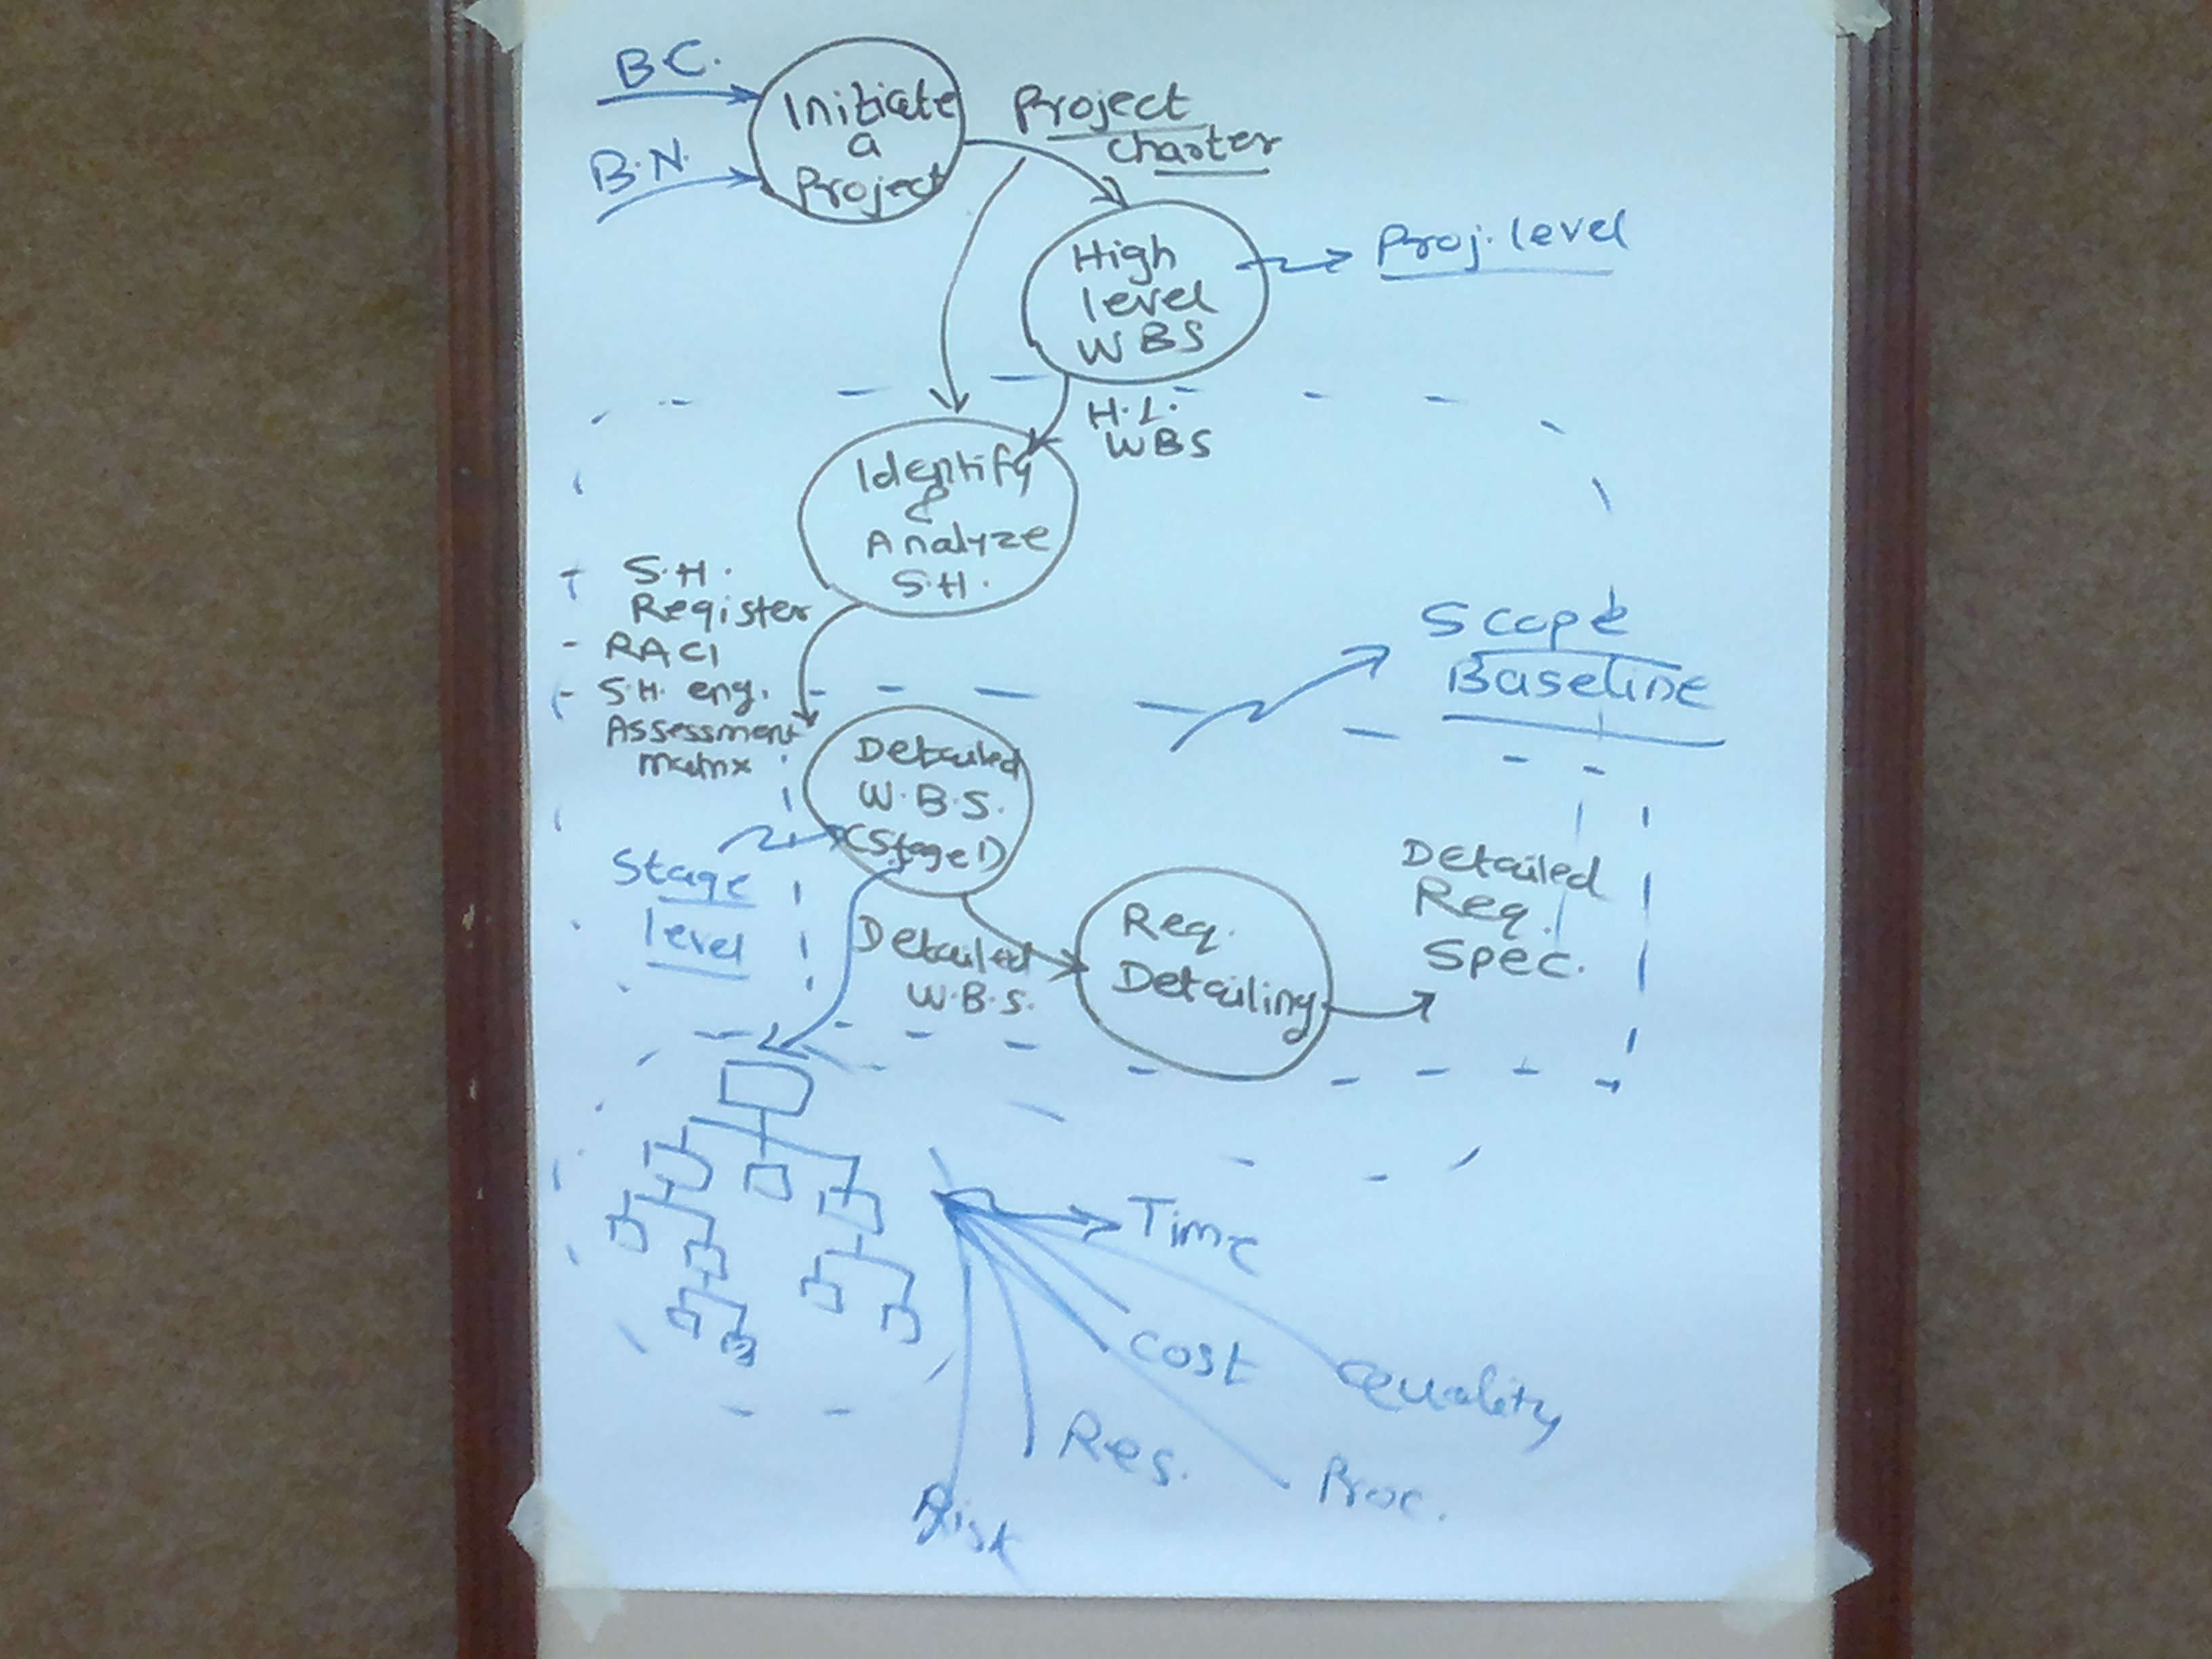 B.C.
B.N.
Initiate
a
Project
Project
Charter
High
level
WBS
Proj. level
H.L.
WBS
Identify
&
Analyze
S.H.
S.H.
Register
- RACI
- S.H. eng.
Assessment
matrix
Scope
Baseline
Detailed
W.B.S.
(Stage 1)
Stage
level
Detailed
W.B.S.
Req.
Detailing
Detailed
Req.
Spec.
Time
Cost
Quality
Res.
Proc.
Risk